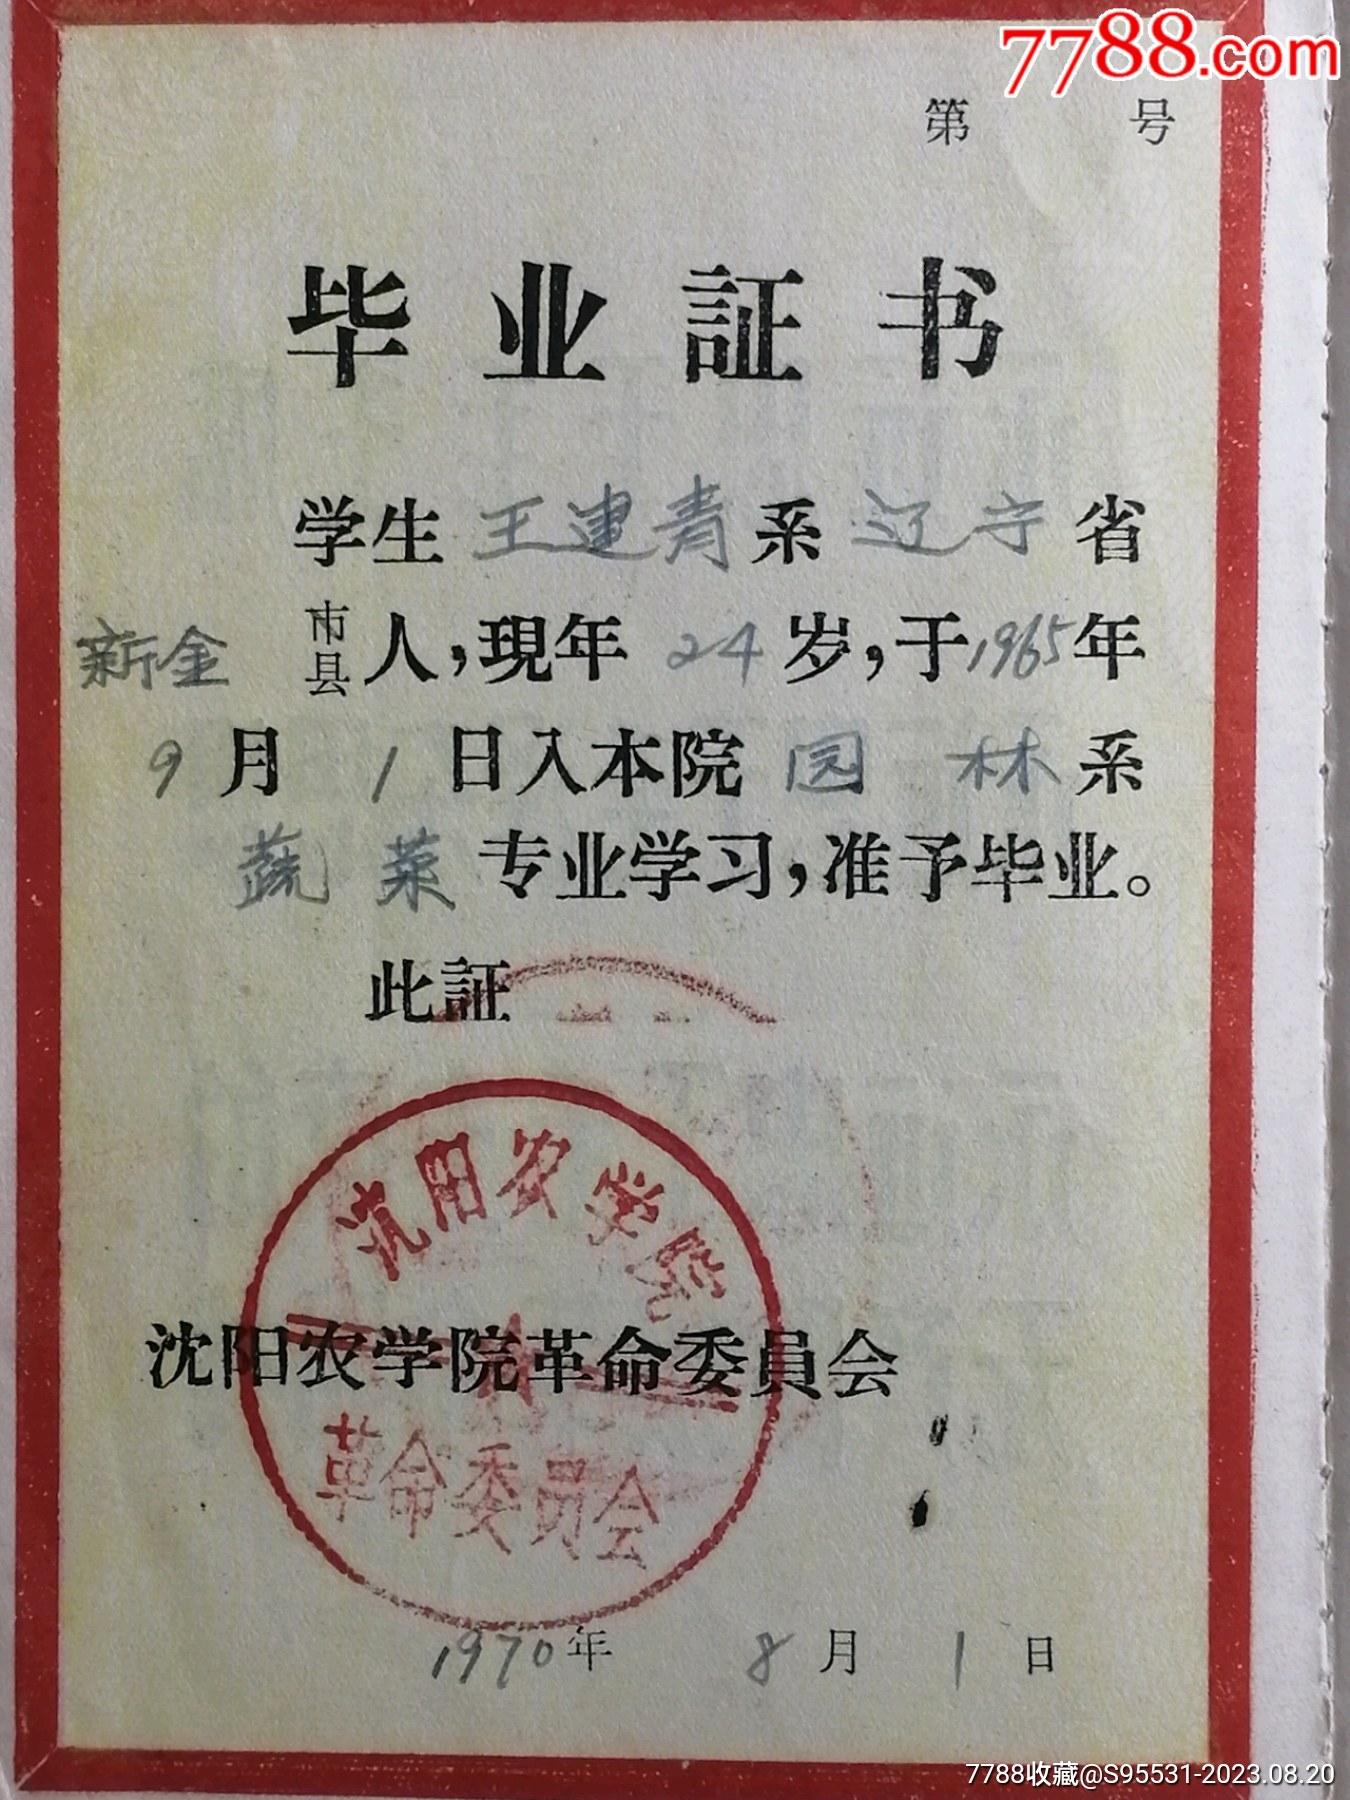 7788.com
第 号
毕业証书
学生 王建青 系 辽宁 省
新金 市县 人，現年 24 岁，于1965年
9 月 1 日入本院 园林 系
蔬菜 专业学习，准予毕业。
此証
沈阳农学院
沈阳农学院革命委員会
革命委员会
1970年 8 月 1 日
7788收藏@S95531-2023.08.20